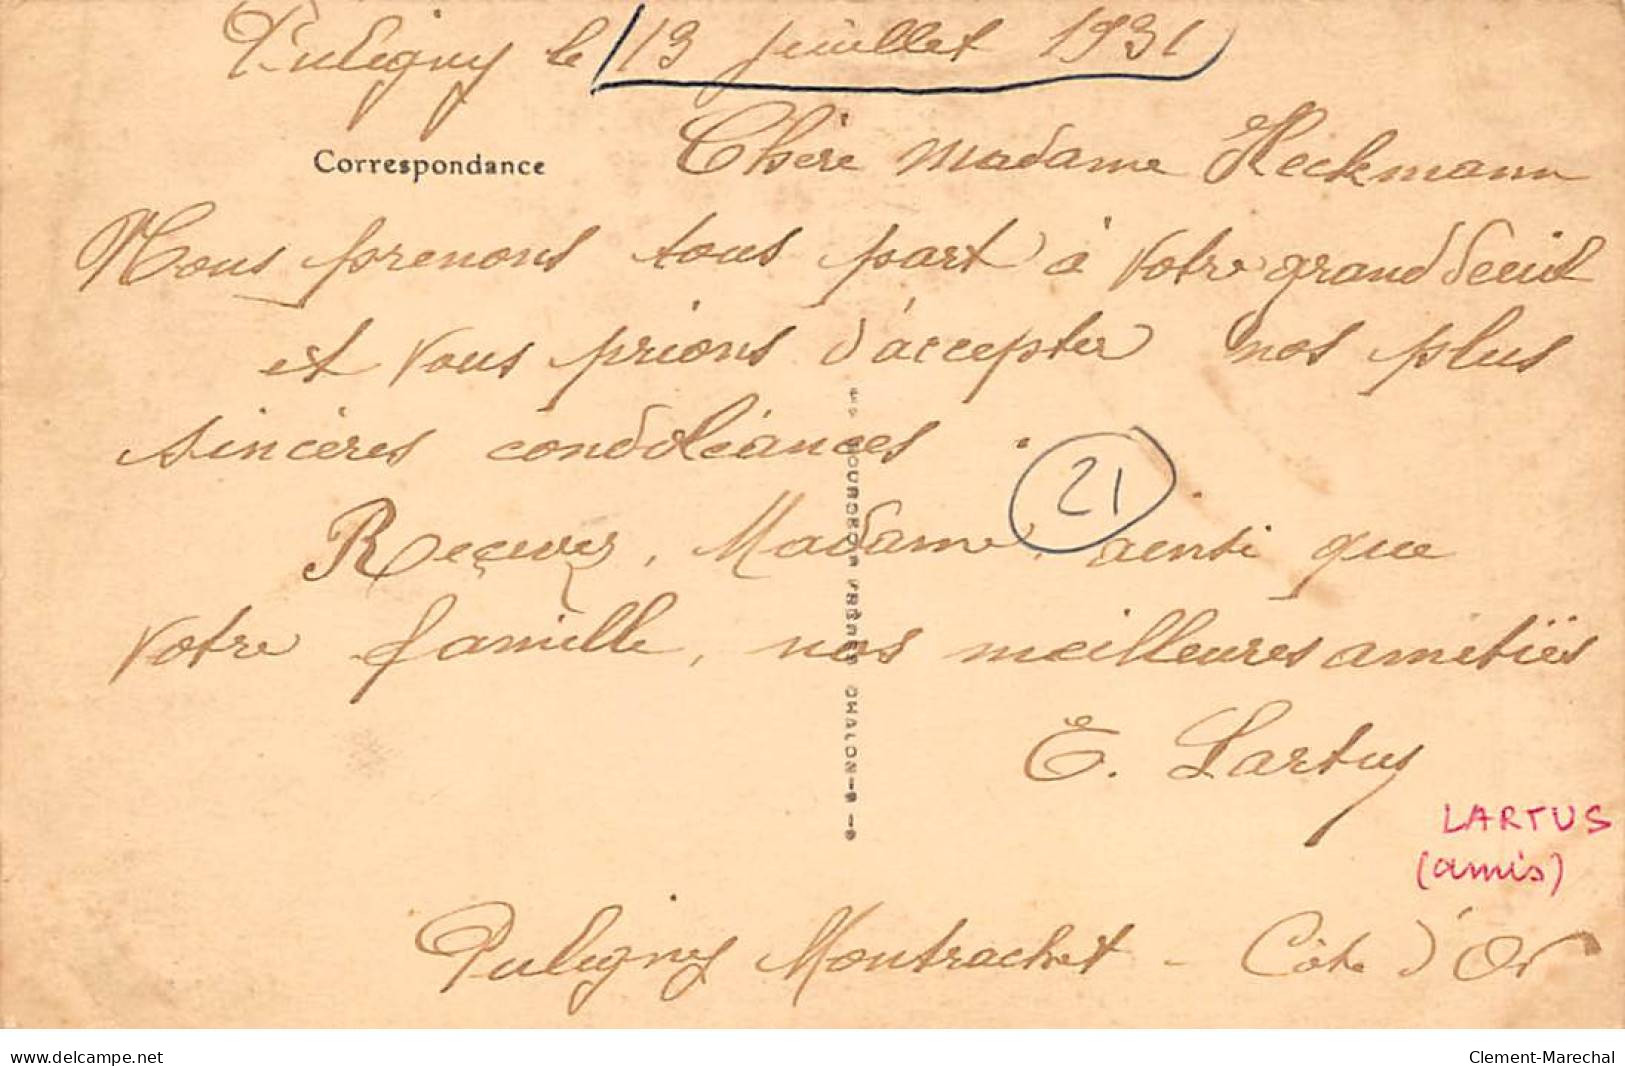 Puligny le 13 juillet 1931
Correspondance
Chère madame Heckmann
Nous prenons tous part à votre grand deuil
et vous prions d'accepter nos plus
sincères condoléances.
21
Reçevez, Madame, ainsi que
votre famille, nos meilleures amitiës
E. Lartus
LARTUS
(amis)
BOURGEOIS FRÈRES CHALON-s-s
Puligny Montrachet - Côte d'Or
www.delcampe.net
Clement-Marechal